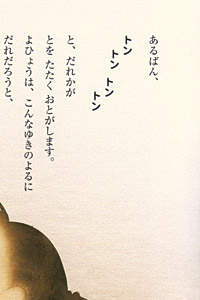 あるばん、
トン
トン
トン
トン
と、だれかが
とを たたく おとがします。
よひょうは、こんなゆきのよるに
だれだろうと、